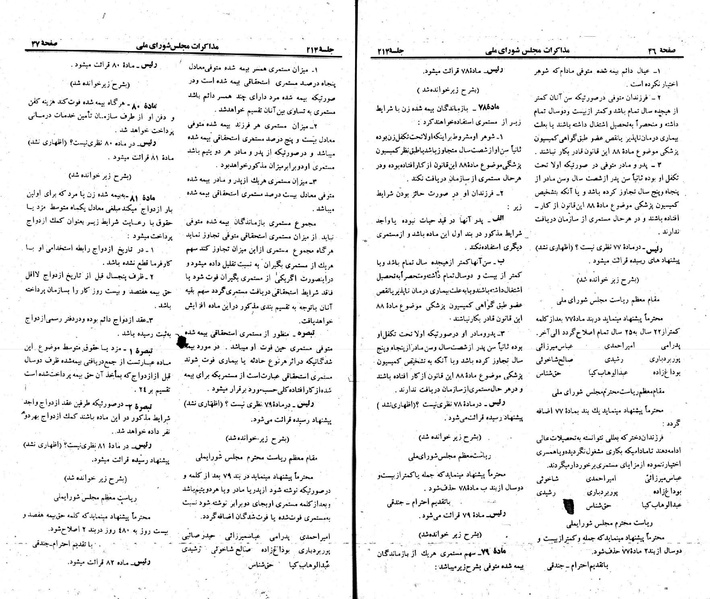 صفحهٔ ۲۶ مذاکرات مجلس شورای ملی جلسهٔ ۲۱۲
۱ـ عیال دائم بیمه شده متوفی مادام که شوهر
اختیار نکرده است.
۲ـ فرزندان متوفی در صورتیکه سن آنان کمتر
از هیجده سال تمام باشد و کمتر از بیست و دو سال تمام
داشته و منحصراً به تحصیل اشتغال داشته باشند یا بعلت
بیماری درمان ناپذیر یا نقص عضو طبق گواهی کمیسیون
پزشکی موضوع مادهٔ ۸۸ این قانون قادر بکار نباشند.
۳ـ پدر و مادر متوفی در صورتیکه اولا تحت
تکفل او بوده ثانیاً سن پدر از شصت سال و سن مادر از
پنجاه و پنج سال تجاوز کرده باشد و یا آنکه بتشخیص
کمیسیون پزشکی موضوع ماده ۸۸ این قانون از کار ـ
افتاده باشند و در هر حال مستمری از سازمان دریافت
ندارند.
رئیس ـ در مادهٔ ۷۷ نظری نیست؟ (اظهاری نشد)
پیشنهاد های رسیده قرائت میشود.
(بشرح زیر خوانده شد)
مقام معظم ریاست مجلس شورای ملی
محترماً پیشنهاد مینماید در بند مادهٔ ۷۷ بعد از کلمه
کمتر از ۲۲ سال به ۲۵ سال تمام اصلاح گردد الی آخر.
پدرامی امیراحمدی عباس میرزائی
پوربردباری رشیدی صالح شاخوئی
بوداغ زاده عبدالوهاب کیا حق شناس
مقام معظم ریاست محترم مجلس شورای ملی
محترماً پیشنهاد مینماید یك بند بمادهٔ ۷۷ اضافه
گردد:
فرزندان دختر که بعللی نتوانسته به تحصیلات عالی
ادامه دهند تا مادامیکه بکاری مشغول نگردیده و یا همسری
اختیار ننموده از مزایای مستمری برخوردار میگردند.
عباس میرزائی امیراحمدی پدرامی شاخوئی
بوداغ زاده پوربردباری رشیدی
عبدالوهاب کیا حق شناس
ریاست محترم مجلس شورای ملی
محترماً پیشنهاد مینماید که جمله و کمتر از بیست و
دو سال از بند ۲ مادهٔ ۷۷ حذف شود.
با تقدیم احترام ـ جندقی
رئیس ـ مادهٔ ۷۸ قرائت میشود.
(بشرح زیر خوانده شد)
مادهٔ ۷۸ـ بازماندگان بیمه شده زن با شرایط
زیر از مستمری استفاده خواهند کرد:
۱ـ شوهر او مشروط بر اینکه اولا تحت تکفل زن بوده
ثانیاً سن او از شصت سال متجاوز باشد یا طبق نظر کمیسیون
پزشکی موضوع مادهٔ ۸۸ این قانون از کار افتاده بوده و در
هر حال مستمری از سازمان دریافت نکند.
۲ـ فرزندان او در صورت حائز بودن شرایط
زیر:
الف ـ پدر آنها در قید حیات نبوده یا واجد
شرایط مذکور در بند اول این ماده باشد و از مستمری
دیگری استفاده نکند.
ب ـ سن آنها کمتر از هیجده سال تمام باشد و یا
کمتر از بیست و دو سال تمام داشته و منحصراً به تحصیل
اشتغال داشته باشند و یا به علت بیماری درمان ناپذیر یا نقص
عضو طبق گواهی کمیسیون پزشکی موضوع مادهٔ ۸۸
این قانون قادر بکار نباشند.
۳ـ پدر و مادر او در صورتیکه اولا تحت تکفل او
بوده ثانیاً سن پدر از شصت سال و سن مادر از پنجاه و پنج
سال تجاوز کرده باشد و یا آنکه به تشخیص کمیسیون
پزشکی موضوع ماده ۸۸ این قانون از کار افتاده باشند
و در هر حال مستمری از سازمان دریافت ندارند.
رئیس ـ در مادهٔ ۷۸ نظری نیست؟ (اظهاری نشد)
پیشنهاد رسیده قرائت می شود.
(بشرح زیر خوانده شد)
ریاست معظم مجلس شورای ملی
محترماً پیشنهاد مینماید که جمله یا کمتر از بیست و
دو سال از بند ب مادهٔ ۷۸ حذف شود.
با تقدیم احترام ـ جندقی
رئیس ـ مادهٔ ۷۹ قرائت می شود.
(بشرح زیر خوانده شد)
مادهٔ ۷۹ـ سهم مستمری هر یك از بازماندگان
بیمه شده متوفی بشرح زیر میباشد:
جلسهٔ ۲۱۲ مذاکرات مجلس شورای ملی صفحهٔ ۲۷
۱ـ میزان مستمری همسر بیمه شده متوفی معادل
پنجاه درصد مستمری استحقاقی بیمه شده است و در
صورتیکه بیمه شده مرد دارای چند همسر دائم باشد
مستمری به تساوی بین آنان تقسیم خواهد شد.
۲ـ میزان مستمری هر فرزند بیمه شده متوفی
معادل بیست و پنج درصد مستمری استحقاقی بیمه شده
میباشد و در صورتیکه پدر و مادر هر دو بیتیم باشد
مستمری او دو برابر میزان مذکور خواهد بود.
۳ـ میزان مستمری هر یك از پدر و مادر بیمه شده
متوفی معادل بیست درصد مستمری استحقاقی بیمه شده
میباشد.
مجموع مستمری بازماندگان بیمه شده متوفی
نباید از میزان مستمری استحقاقی متوفی تجاوز نماید
هر گاه مجموع مستمری از این میزان تجاوز کند سهم
هر یك از مستمری بگیران به نسبت تقلیل داده میشود و
در اینصورت اگر یکی از مستمری بگیران فوت شود یا
فاقد شرایط استحقاقی دریافت مستمری گردد سهم بقیه
آنان با توجه به تقسیم بندی مذکور در این ماده افزایش
خواهد یافت.
تبصره ـ منظور از مستمری استحقاقی بیمه شده
متوفی مستمری حین فوت او میباشد. در مورد بیمه
شدگانیکه در اثر هر نوع حادثه یا بیماری فوت شوند
مستمری استحقاقی عبارت است از مستمریکه برای بیمه
شده از کار افتاده کلی حسب مورد برقرار میشود.
رئیس ـ در مادهٔ ۷۹ نظری نیست؟ (اظهاری نشد)
پیشنهاد رسیده قرائت می شود.
(بشرح زیر خوانده شد)
مقام معظم ریاست مجلس شورایملی
محترماً پیشنهاد مینماید در بند ۷۹ بعد از کلمه و
در صورتیکه نوشته شود از پدر یا مادر و یا هر دو یتیم باشد
و بعد از کلمه مستمری او بجای دو برابر نوشته شود نسبت
به مستمری فوت شده یا فوت شدگان اضافه گردد.
امیراحمدی پدرامی عباس میرزائی حیدر صائبی
پوربردباری بوداغ زاده صالح شاخوئی رشیدی
عبدالوهاب کیا حق شناس
رئیس ـ مادهٔ ۸۰ قرائت میشود.
(بشرح زیر خوانده شد)
مادهٔ ۸۰ـ هر گاه بیمه شده فوت کند هزینه کفن
و دفن او از طرف سازمان تأمین خدمات درمانی
پرداخت خواهد شد.
رئیس ـ در ماده ۸۰ نظری نیست؟ (اظهاری نشد)
ماده ۸۱ قرائت میشود.
(بشرح زیر خوانده شد)
مادهٔ ۸۱ـ به بیمه شده زن یا مرد که برای اولین
بار ازدواج میکند مبلغی معادل یکماه متوسط مزد یا
حقوق با رعایت شرایط زیر بعنوان کمك ازدواج
پرداخت میشود:
۱ـ در تاریخ ازدواج رابطه استخدامی او با
کارفرما قطع نشده باشد.
۲ـ ظرف پنجسال قبل از تاریخ ازدواج لااقل
حق بیمه هفتصد و بیست روز کار را بسازمان پرداخته
باشد.
۳ـ عقد ازدواج دائم بوده و در دفتر رسمی ازدواج
به ثبت رسیده باشد.
تبصره ۱ـ مزد یا حقوق متوسط موضوع این
ماده عبارتست از جمع دریافتی بیمه شده ظرف دو سال
قبل از ازدواج که بمأخذ آن حق بیمه پرداخت شده است
تقسیم بر ۲۴.
تبصره ۲ـ در صورتیکه طرفین عقد ازدواج واجد
شرایط مذکور در این ماده باشند کمك ازدواج بهر دو
نفر داده خواهد شد.
رئیس ـ در ماده ۸۱ نظری نیست؟ (اظهاری نشد)
پیشنهاد رسیده قرائت میشود.
(بشرح زیر خوانده شد)
ریاست معظم مجلس شورایملی
محترماً پیشنهاد مینماید که جمله حق بیمه هفتصد و
بیست روز به ۴۸۰ روز در بند ۲ اصلاح شود.
با تقدیم احترام ـ جندقی
رئیس ـ ماده ۸۲ قرائت میشود.